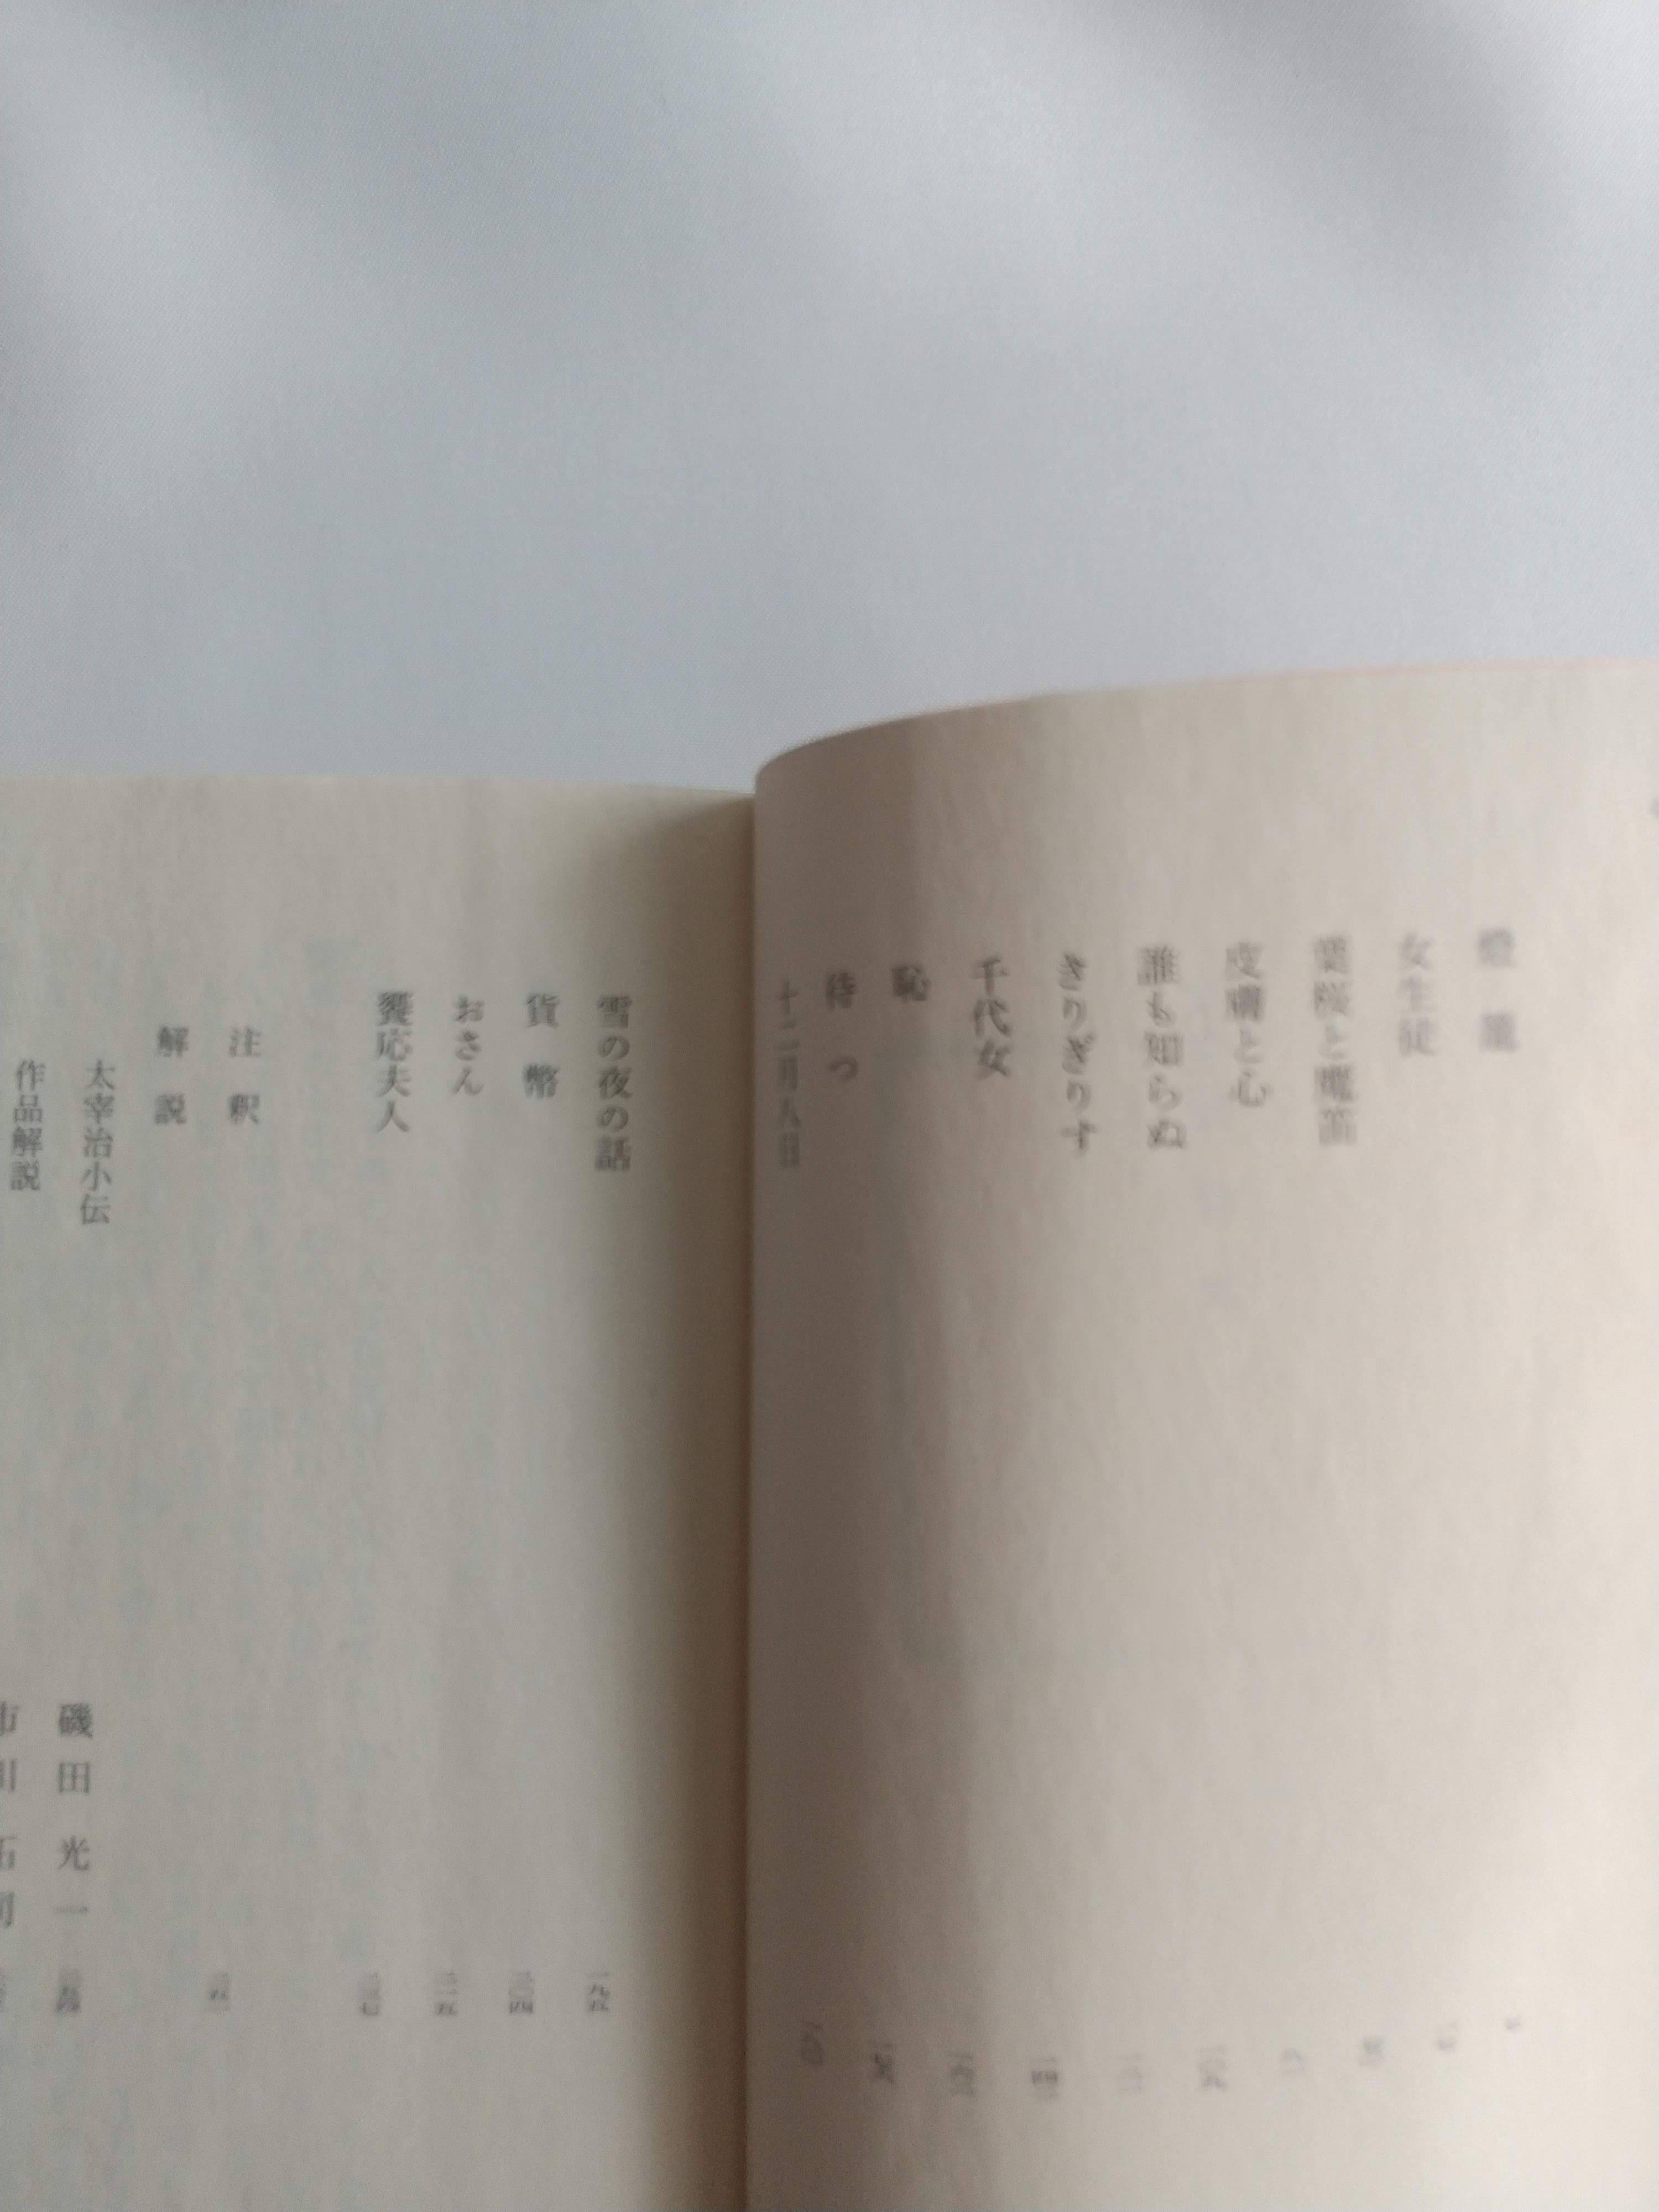 燈籠
女生徒
葉桜と魔笛
皮膚と心
誰も知らぬ
きりぎりす
千代女
恥
待つ
十二月八日
雪の夜の話 一九五
貨幣 二〇四
おさん 二一五
饗応夫人 二三七
注釈 二五一
解説
太宰治小伝 磯田光一
作品解説